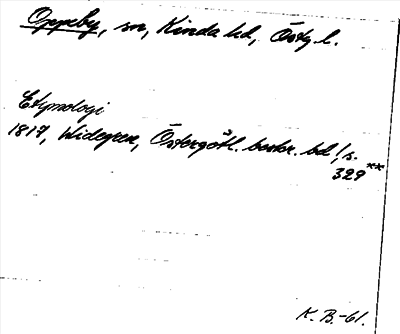 Oppeby, sn, Kinda hd, Östg l.
Etymologi
1817, Widegren, Östergötl. beskr. bd 1, s. **
329
K. B.-61.